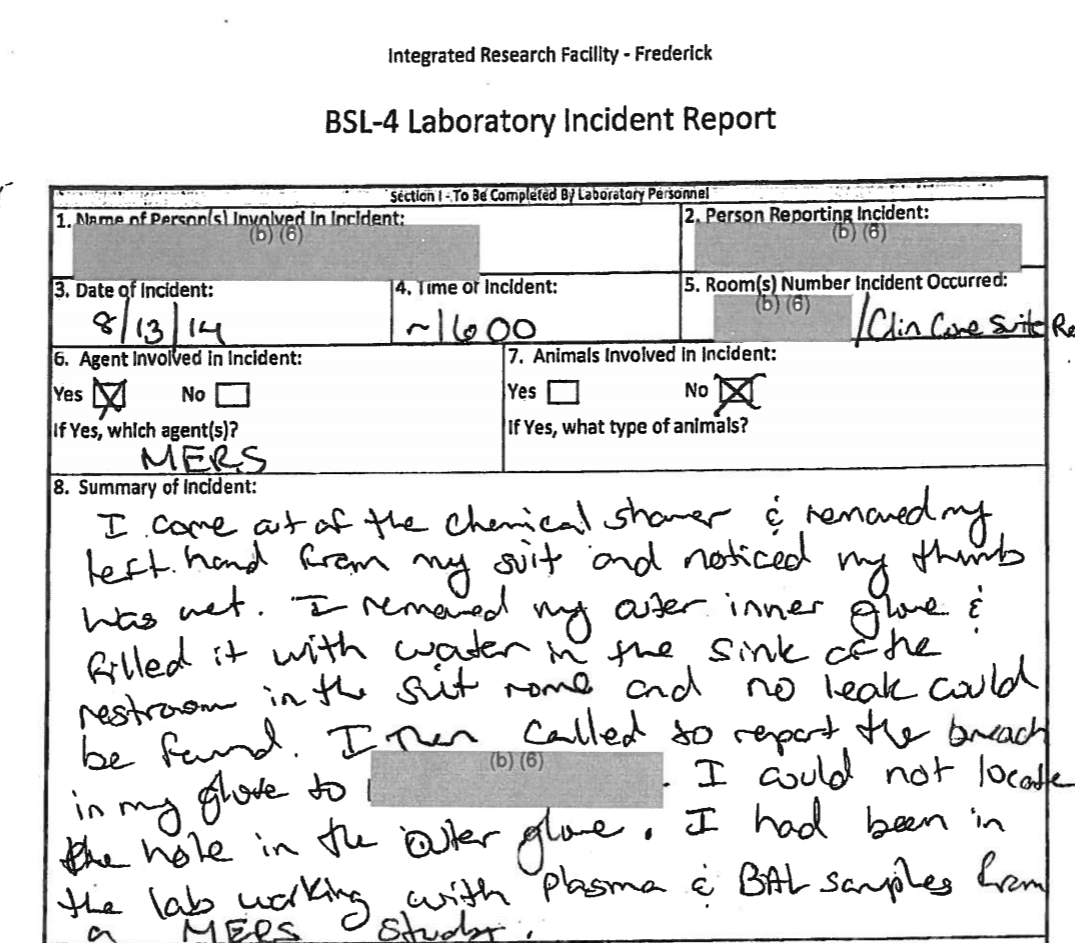 Integrated Research Facility - Frederick
BSL-4 Laboratory Incident Report
Section I - To Be Completed By Laboratory Personnel
1. Name of Person(s) Involved In Incident:
(b) (6)
2. Person Reporting Incident:
(b) (6)
3. Date of Incident:
8/13/14
4. Time of Incident:
~1600
5. Room(s) Number Incident Occurred:
(b) (6) /Clin Core Suite
6. Agent Involved in Incident:
Yes No
If Yes, which agent(s)?
MERS
7. Animals Involved in Incident:
Yes No
If Yes, what type of animals?
8. Summary of Incident:
I came out of the chemical shower & removed my
left hand from my suit and noticed my thumb
was wet. I removed my outer inner glove &
filled it with water in the sink of the
restroom in the suit and no leak could
be found. I then called to report the breach
in my glove to (b) (6). I could not locate
the hole in the outer glove. I had been in
the lab working with plasma & BAL samples from
a MERS study.